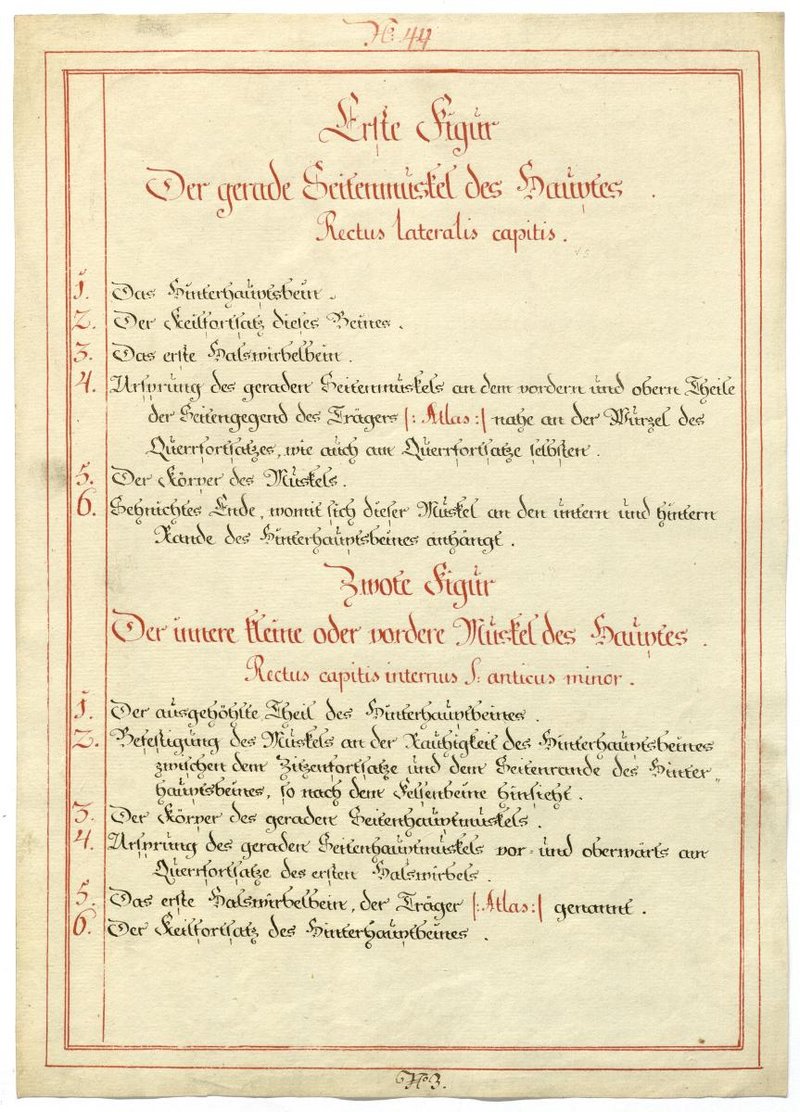 No: 44
Erste Figur
Der gerade Seitenmuskel des Hauptes.
Rectus lateralis capitis.
1. Das Hinterhauptsbein.
2. Der Keilfortsatz dieses Beines.
3. Das erste Halswirbelbein.
4. Ursprung des geraden Seitenmuskels an dem vordern und obern Theile
der Seitengegend des Trägers |: Atlas :| nahe an der Wurzel des
Querrfortsatzes, wie auch am Querrfortsatze selbsten.
5. Der Körper des Muskels.
6. Sehnichtes Ende, womit sich dieser Muskel an den untern und hintern
Rande des Hinterhauptsbeines anhängt.
Zwote Figur
Der innere kleine oder vordere Muskel des Hauptes.
Rectus capitis internus S: anticus minor.
1. Der ausgehöhlte Theil des Hinterhauptbeines.
2. Befestigung des Muskels an der Rauhigkeit des Hinterhauptsbeines
zwischen dem Zitzenfortsatze und dem Seitenrande des Hinter„
hauptsbeines, so nach dem Felsenbeine hinsieht.
3. Der Körper des geraden Seitenhauptmuskels.
4. Ursprung des geraden Seitenhauptmuskels vor- und oberwärts am
Querrfortsatze des ersten Halswirbels.
5. Das erste Halswirbelbein, der Träger |: Atlas :| genannt.
6. Der Keilfortsatz des Hinterhauptbeines.
No 3.